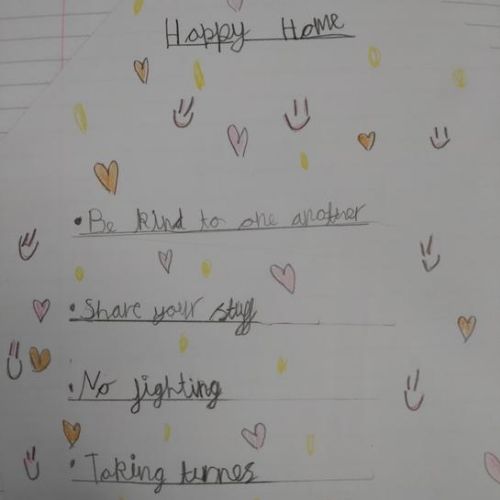 Happy Home
• Be kind to one another
• Share your stuff
• No fighting
• Taking turnes